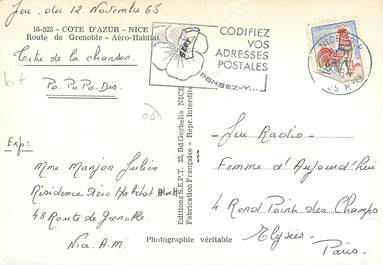 Jeu du 12 Novembre 65
10-523 - COTE D'AZUR - NICE
Route de Grenoble - Aéro-Habitat
Titre de la chanson
Po. Po. Po. Dis.
Exp:
Mme Manjon Julien
Résidence Aéro Habitat
48 Route de Grenoble
Nice. A.M.
CODIFIEZ
VOS
ADRESSES
POSTALES
PENSEZ-Y...
Editions S.E.P.T. 35, Bd Gorbella NICE
Fabrication Française - Repr. Interdite
Jeu Radio
Femme d'Aujourd'hui
4 Rond Point des Champs
Elysées.
Paris.
Photographie véritable